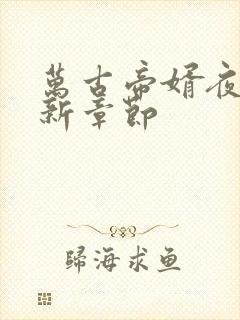 萬古帝婿夜
新章節
歸海求鱼